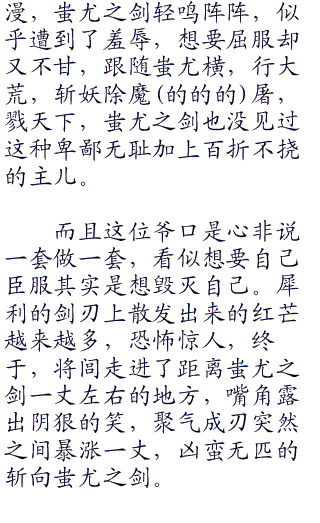 漫，蚩尤之剑轻鸣阵阵，似
乎遭到了羞辱，想要屈服却
又不甘，跟随蚩尤横，行大
荒，斩妖除魔(的的的)屠，
戮天下，蚩尤之剑也没见过
这种卑鄙无耻加上百折不挠
的主儿。
而且这位爷口是心非说
一套做一套，看似想要自己
臣服其实是想毁灭自己。犀
利的剑刃上散发出来的红芒
越来越多，恐怖惊人，终
于，将闾走进了距离蚩尤之
剑一丈左右的地方，嘴角露
出阴狠的笑，聚气成刃突然
之间暴涨一丈，凶蛮无匹的
斩向蚩尤之剑。